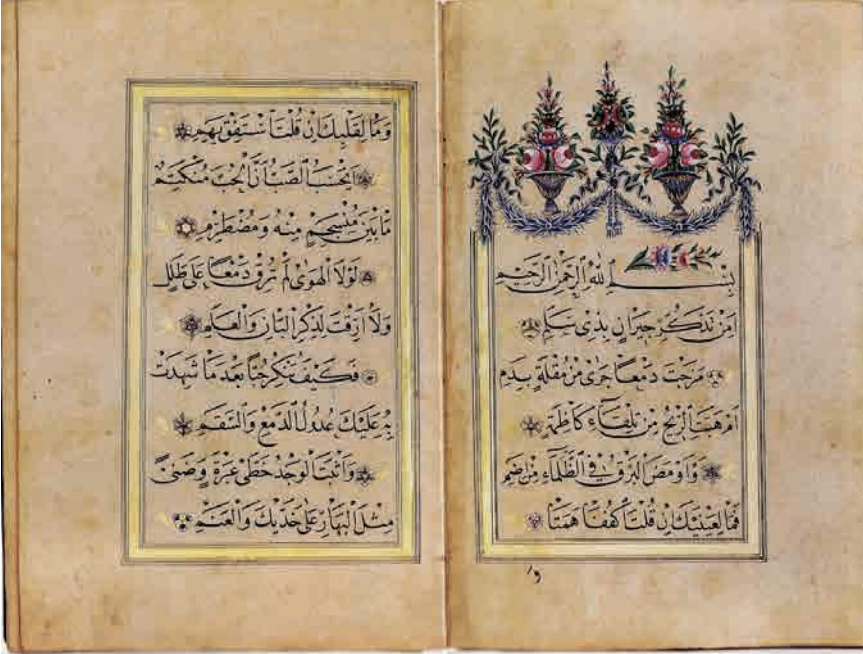 بِسْمِ اللهِ الرَّحْمٰنِ الرَّحِيمِ
اَمِنْ تَذَكُّرِ جِيرَانٍ بِذِى سَلَمِ
مَزَجْتَ دَمْعًا جَرٰى مِنْ مُقْلَةٍ بِدَمِ
اَمْ هَبَّتِ الرِّيحُ مِنْ تِلْقَاءِ كَاظِمَةٍ
وَاَوْمَضَ الْبَرْقُ فِى الظَّلْمَاءِ مِنْ اِضَمِ
فَمَا لِعَيْنَيْكَ اِنْ قُلْتَ اكْفُفَا هَمَتَا
و
وَمَا لِقَلْبِكَ اِنْ قُلْتَ اسْتَفِقْ يَهِمِ
اَيَحْسَبُ الصَّبُّ اَنَّ الْحُبَّ مُنْكَتِمٌ
مَا بَيْنَ مُنْسَجِمٍ مِنْهُ وَمُضْطَرِمِ
لَوْلَا الْهَوٰى لَمْ تُرِقْ دَمْعًا عَلٰى طَلَلٍ
وَلَا اَرِقْتَ لِذِكْرِ الْبَانِ وَالْعَلَمِ
فَكَيْفَ تُنْكِرُ حُبًّا بَعْدَ مَا شَهِدَتْ
بِهِ عَلَيْكَ عُدُولُ الدَّمْعِ وَالسَّقَمِ
وَاَثْبَتَ الْوَجْدُ خَطَّىْ عَبْرَةٍ وَضَنًى
مِثْلَ الْبَهَارِ عَلٰى خَدَّيْكَ وَالْعَنَمِ